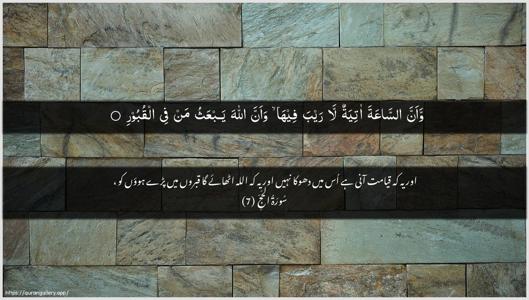 وَّاَنَّ السَّاعَةَ اٰتِيَةٌ لَّا رَيْبَ فِيْهَا ۙ وَاَنَّ اللّٰهَ يَـبْعَثُ مَنْ فِى الْقُبُوْرِ ○
اور یہ کہ قیامت آنی ہے اُس میں دھوکا نہیں اور یہ کہ اللہ اٹھائے گا قبروں میں پڑے ہوؤں کو ،
سُورَةُ الْحَجّ (7)
https://qurangallery.app/